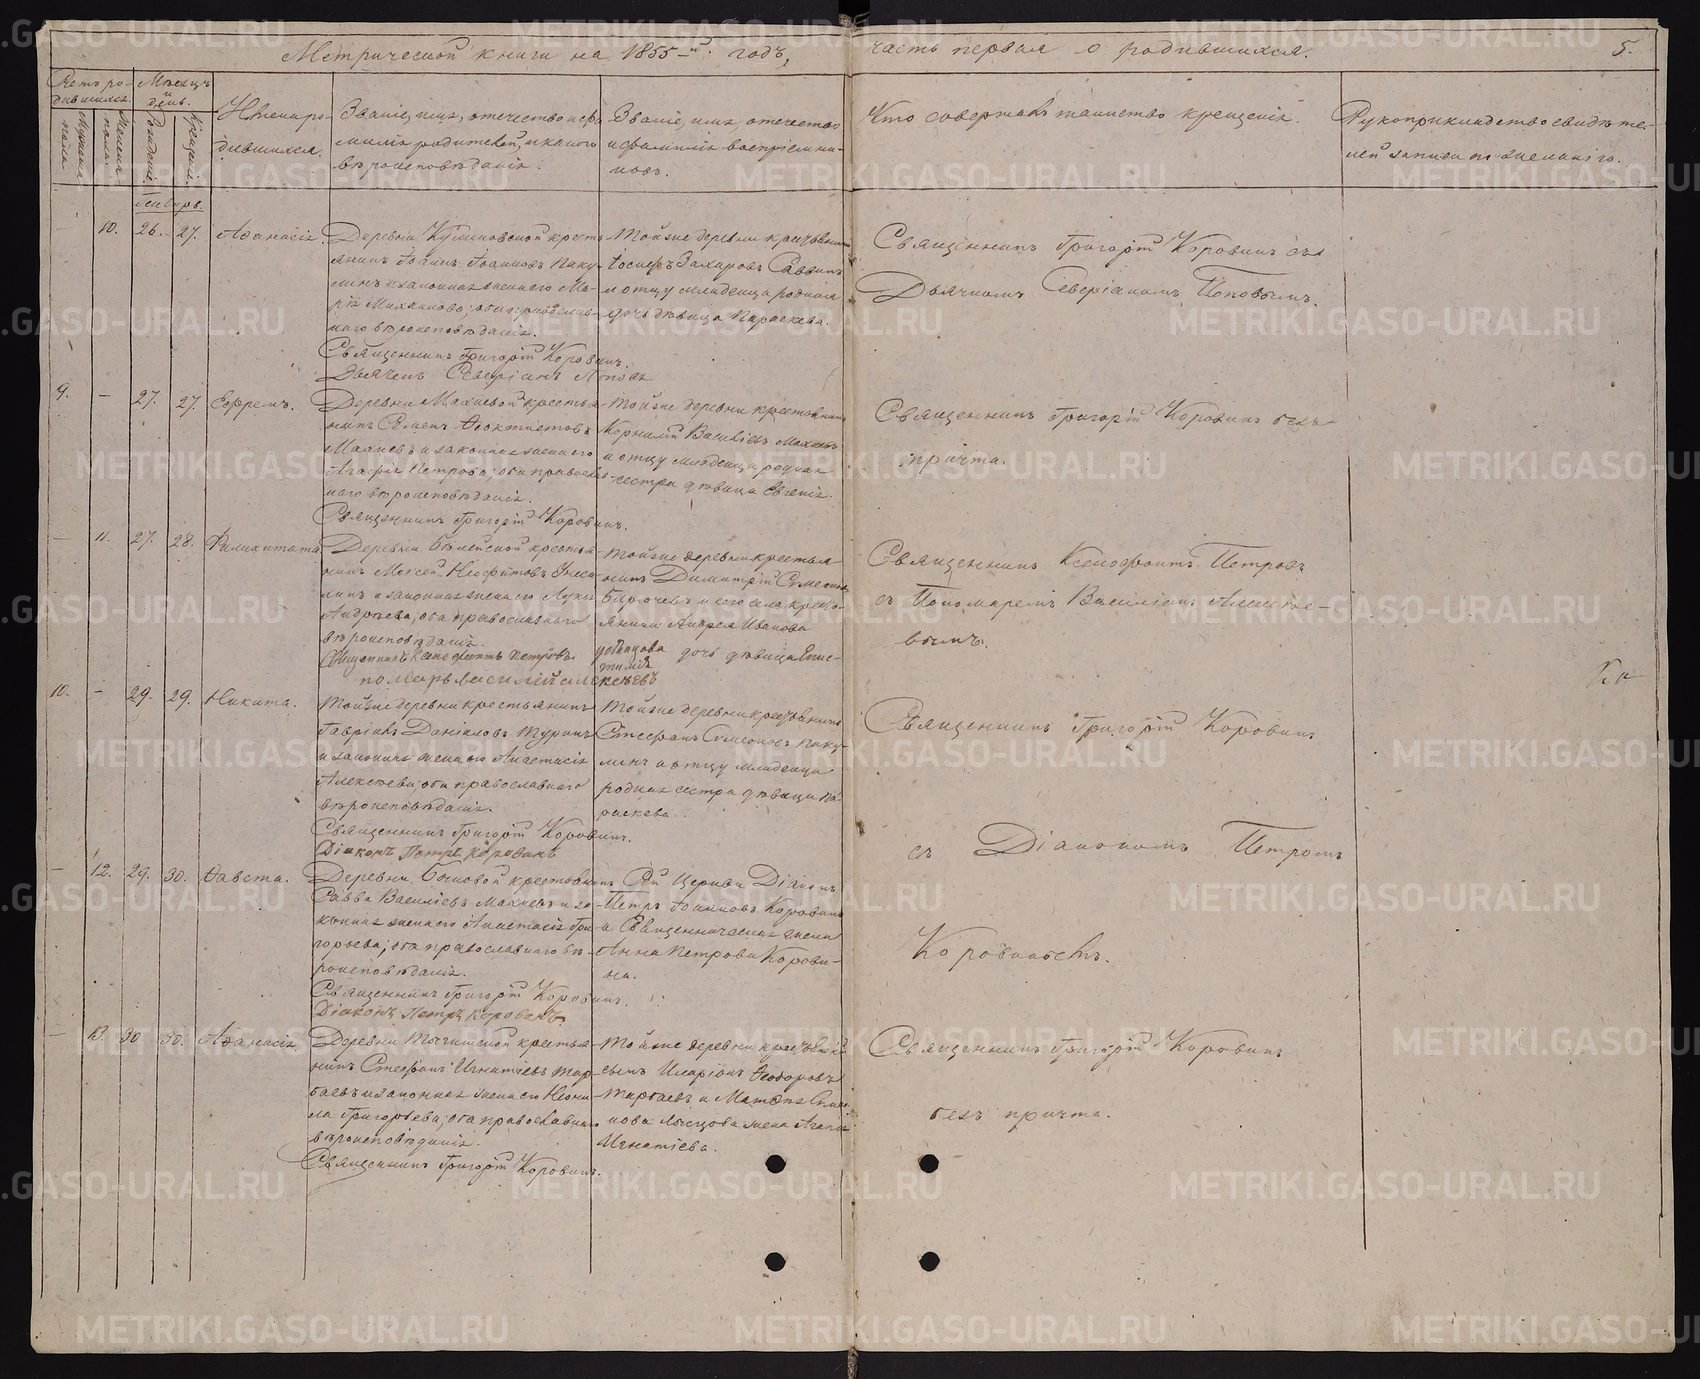 Метрической книги на 1855-й годъ,
часть первая о родившихся.
5.
Счетъ ро-
дившихся.
Мѣсяцъ
и
день.
Мужска
пола.
Женска
пола.
Рожденія.
Крещенія.
Имена ро-
дившихся.
Званіе, имя, отечество и фа
милія родителей, и какого
вѣроисповѣданія.
Званіе, имя, отечество
и фамилія воспріемни-
ковъ.
Кто совершалъ таинство крещенія.
Рукоприкладство свидѣте-
лей записи по желанію.
Январь.
10. 26. 27. Аѳанасія.
Деревни кресть
янинъ Іоаннъ Іоанновъ Паку-
линъ и законная жена его Ма-
рія Михайлова; оба православ-
наго вѣроисповѣданія.
Священникъ Григорій Коровинъ
Дьячекъ Северіанъ Поповъ
Тойже деревни крестьянинъ
Іосифъ Захаровъ Саввинъ
и отцу младенца родная
дочь дѣвица Параскева.
Священникъ Григорій Коровинъ съ
Дьячкомъ Северіаномъ Поповымъ.
9. – 27. 27. Ефремъ.
Деревни Махневой крестья-
нинъ Семенъ Ѳеоктистовъ
Махневъ и законная жена его
Агафія Петрова; оба православ
наго вѣроисповѣданія.
Священникъ Григорій Коровинъ.
Тойже деревни крестьянинъ
Корнилій Васильевъ Махневъ
и отцу младенца родная
сестра дѣвица Евгенія.
Священникъ Григорій Коровинъ безъ
причта.
– 11. 27. 28. Филикитата
Деревни крестья-
нинъ Моисей Неофитовъ
и законная жена его
Андреева; оба православнаго
вѣроисповѣданія.
Священникъ Ксенофонтъ Петровъ
пономарь Василий Алексѣевъ
Тойже деревни крестья
нинъ Димитрій Симеонов
и его села кресть-
янина Андрея Иванова
дочь дѣвица Епис-
тимія
Священникъ Ксенофонтъ Петровъ
съ Пономаремъ Василіемъ Алексѣе-
вымъ.
10. – 29. 29. Никита.
Тойже деревни крестьянинъ
Гавріилъ Даніиловъ Туринъ
и законная жена его Анастасія
Алексѣева; оба православнаго
вѣроисповѣданія.
Священникъ Григорій Коровинъ.
Діаконъ Петръ Коровинъ
Тойже деревни крестьянинъ
Стефанъ Симеоновъ Паку-
линъ и отцу младенца
родная сестра дѣвица Па-
раскева.
Священникъ Григорій Коровинъ
съ Діакономъ Петромъ
Коровинымъ.
– 12. 29. 30. Ѳавста.
Деревни крестьянинъ
Савва Василіевъ Махневъ и за-
конная жена его Анастасія Гри-
горьева; оба православнаго вѣ-
роисповѣданія.
Священникъ Григорій Коровинъ.
Діаконъ Петръ Коровинъ
Сей Церкви Діаконъ
Петръ Іоанновъ Коровинъ
и Священническая жена
Анна Петрова Корови-
на.
– 13. 30 30. Аѳанасія.
Деревни крестья-
нинъ Стефанъ Игнатіевъ Тар-
баевъ и законная жена его Неони-
ла Григорьева; оба православнаго
вѣроисповѣданія.
Священникъ Григорій Коровинъ.
Тойже деревни крестьянск
сынъ Иларіонъ Ѳеодоровъ
Тарбаевъ и
жена Агаѳія
Игнатіева.
Священникъ Григорій Коровинъ
безъ причта.
METRIKI.GASO-URAL.RU